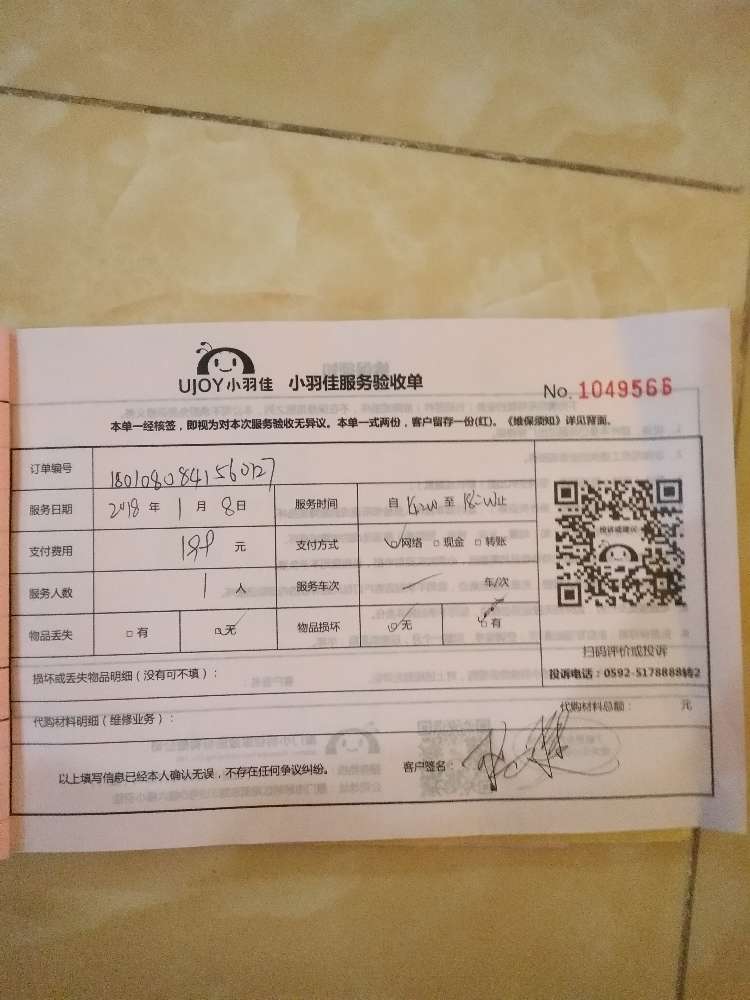 UJOY小羽佳 小羽佳服务验收单
No. 1049566
本单一经核签，即视为对本次服务验收无异议。本单一式两份，客户留存一份(红)。《维保须知》详见背面。
订单编号 180108084156027
服务日期 2018 年 1 月 8 日 服务时间 自 至 止
支付费用 元 支付方式 □网络 □现金 □转账
服务人数 1 人 服务车次 车/次
物品丢失 □有 □无 物品损坏 □无 □有
投诉或建议
扫码评价或投诉
投诉电话：0592-5178888转2
损坏或丢失物品明细（没有可不填）：
代购材料明细（维修业务）： 代购材料总额： 元
以上填写信息已经本人确认无误，不存在任何争议纠纷。 客户签名：